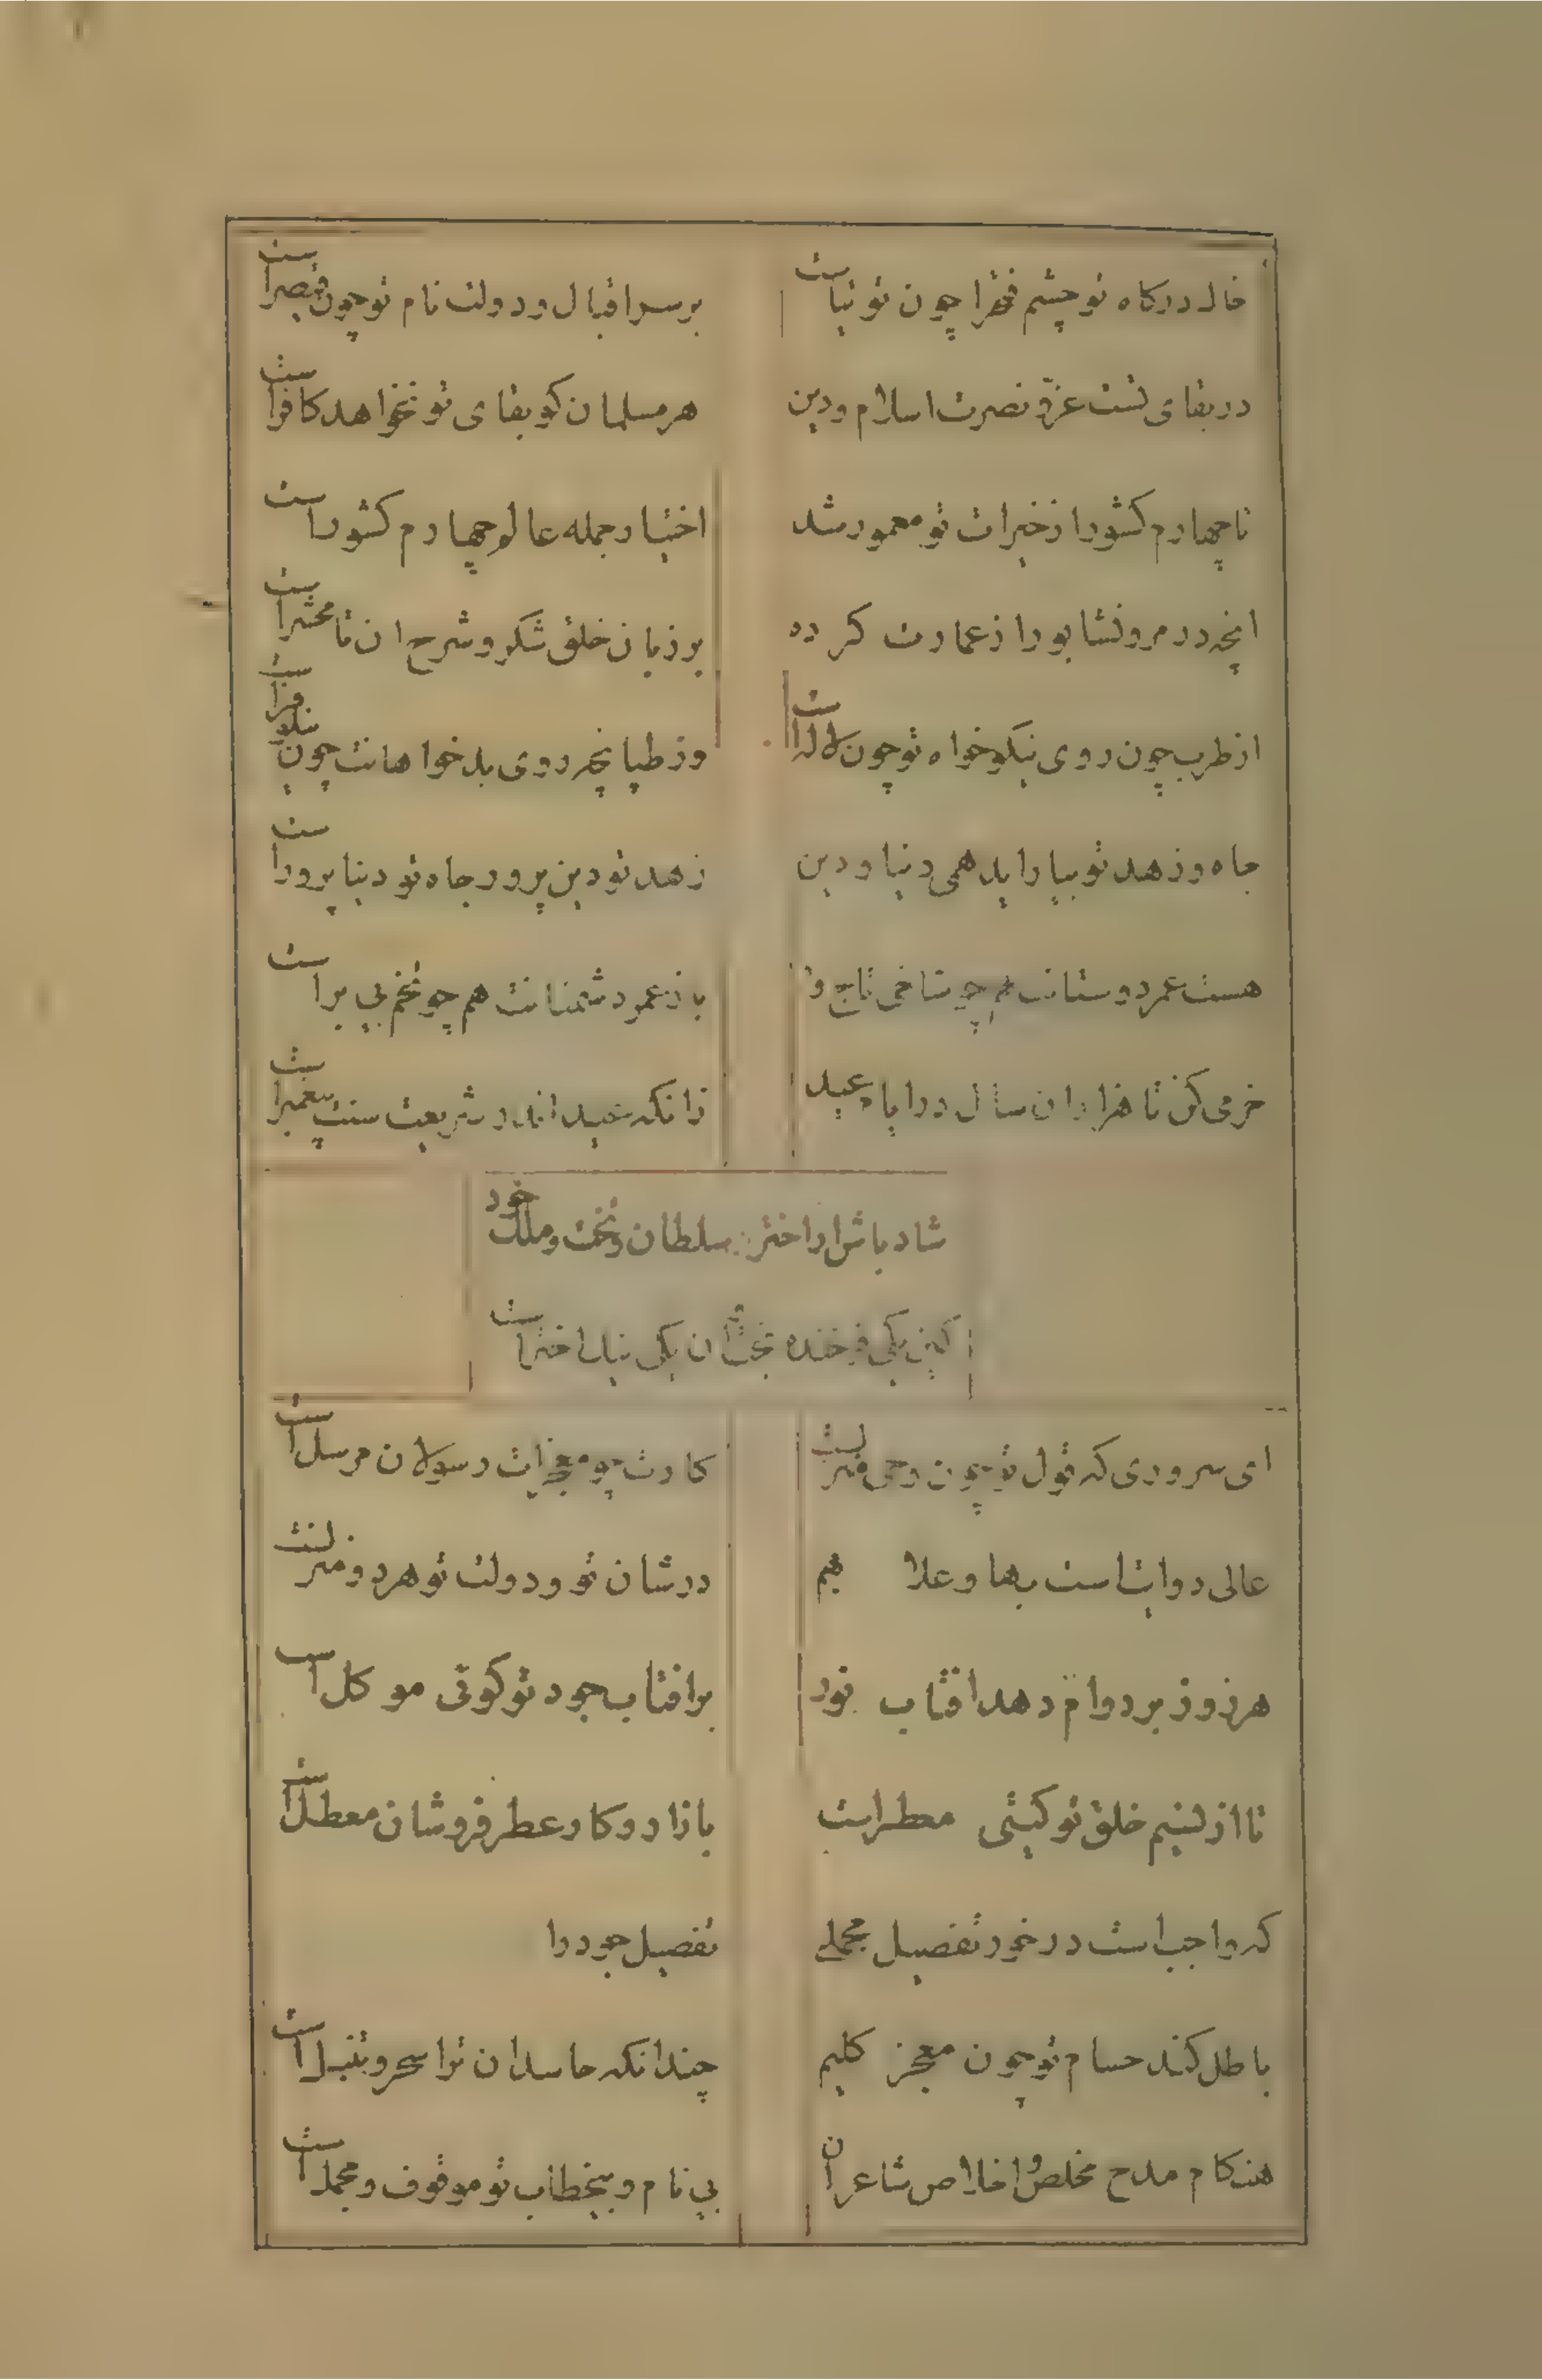 خاک درکاه تو چشم فخر را چون توتیاست
بر سر اقبال و دولت نام تو چون قیصر است
در بقای تست عزّ و نصرت اسلام و دین
هر مسلمان کو بقای تو نخواهد کافر است
تا چهارم کشور از خیرات تو معمور شد
اختیار جمله عالم چهارم کشور است
انچه در مرو و نشابور از عمارت کرده
بر زبان خلق شکر و شرح ان تا محشر است
از طرب چون روی نیکوخواه تو چون لاله است
وز طپانچه روی بدخواهانت چون نیلوفر است
جاه و زهد تو بیاراید همی دنیا و دین
زهد تو دین پرور و جاه تو دنیا پرور است
هست عمر دوستانت هم چو شاخی تاج ور
باز عمر دشمنانت هم چو تخم بی بر است
خرمی کن تا هزاران سال در ایام عید
زانکه عید اندر شریعت سنت پیغمبر است
شاد باش از اختر سلطان و تخت و ملک خود
کین یکی فرخنده تخت ان یکی نیک اختر است
ای سروری که قول تو چون وحی منزلست
کارت چو معجزات رسولان مرسل است
عالی دو ایت است بها و علا بهم
در شان تو و دولت تو هر دو منزلست
هر روز بر دوام دهد افتاب نور
بر افتاب جود تو کوئی موکل است
تا از نسیم خلق تو کیتی معطر است
بازار و کار عطر فروشان معطل است
که واجب است در خور تفصیل مجملی
تفصیل جود را
باطل کند حسام تو چون معجز کلیم
چندانکه حاسدان ترا سحر و تنبل است
هنکام مدح مخلص و اخلاص شاعران
بی نام و بیخطاب تو موقوف و مجمل است